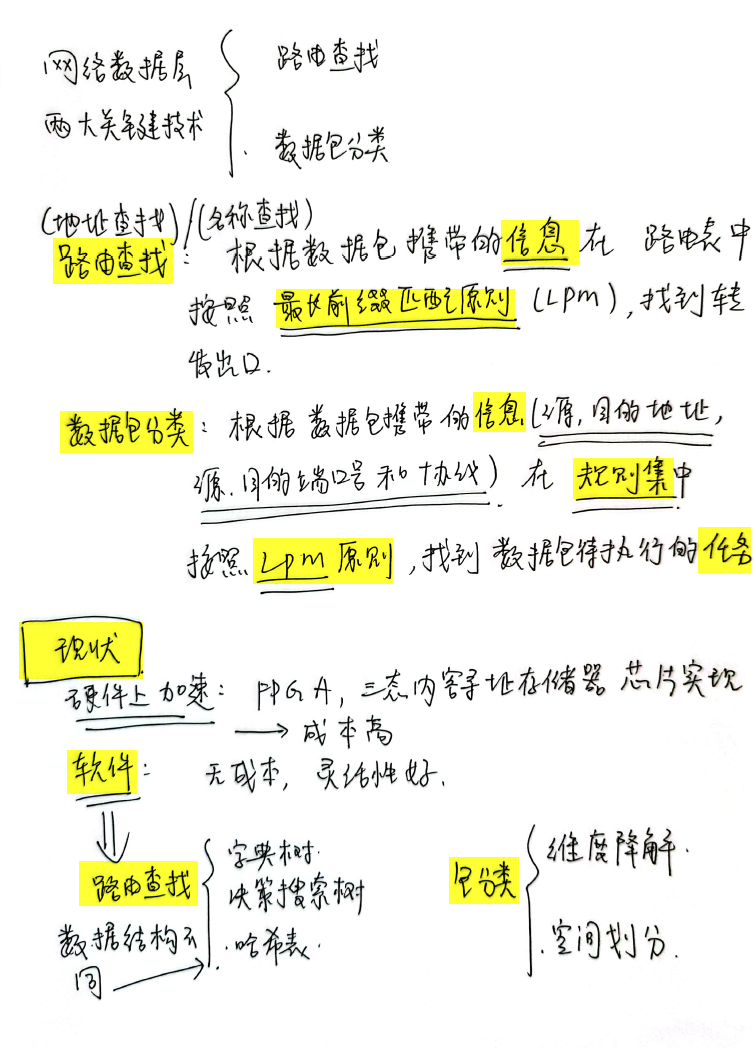 网络数据层
两大关键技术
路由查找
数据包分类
(地址查找)/(名称查找)
路由查找：根据数据包携带的信息在 路由表中
按照 最长前缀匹配原则 (LPM)，找到转
发出口.
数据包分类：根据数据包携带的信息(源,目的地址,
源,目的端口号和协议) 在 规则集中
按照 LPM 原则，找到数据包待执行的任务
现状
硬件上加速：FPGA，三态内容寻址存储器芯片实现
→ 成本高
软件：无成本，灵活性好.
路由查找
字典树.
决策搜索树
.哈希表.
数据结构不
同
包分类
维度降解.
.空间划分.